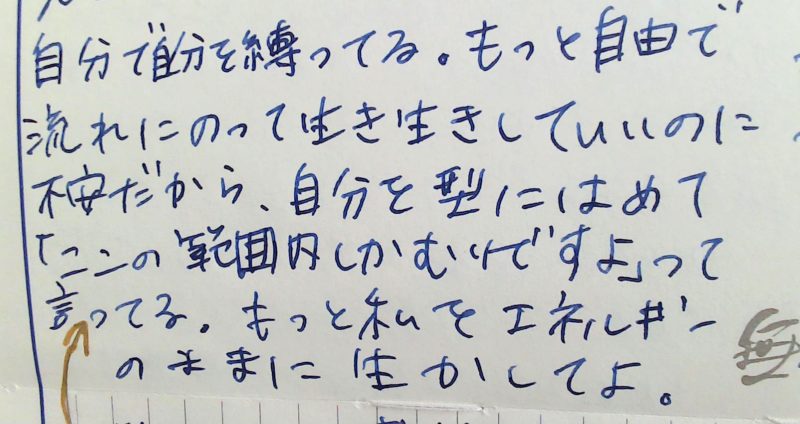 自分で自分を縛ってる。もっと自由で
流れにのって生き生きしていいのに
不安だから、自分を型にはめて
「ここの範囲内しかむりですよ」って
言ってる。もっと私をエネルギー
のままに生かしてよ。